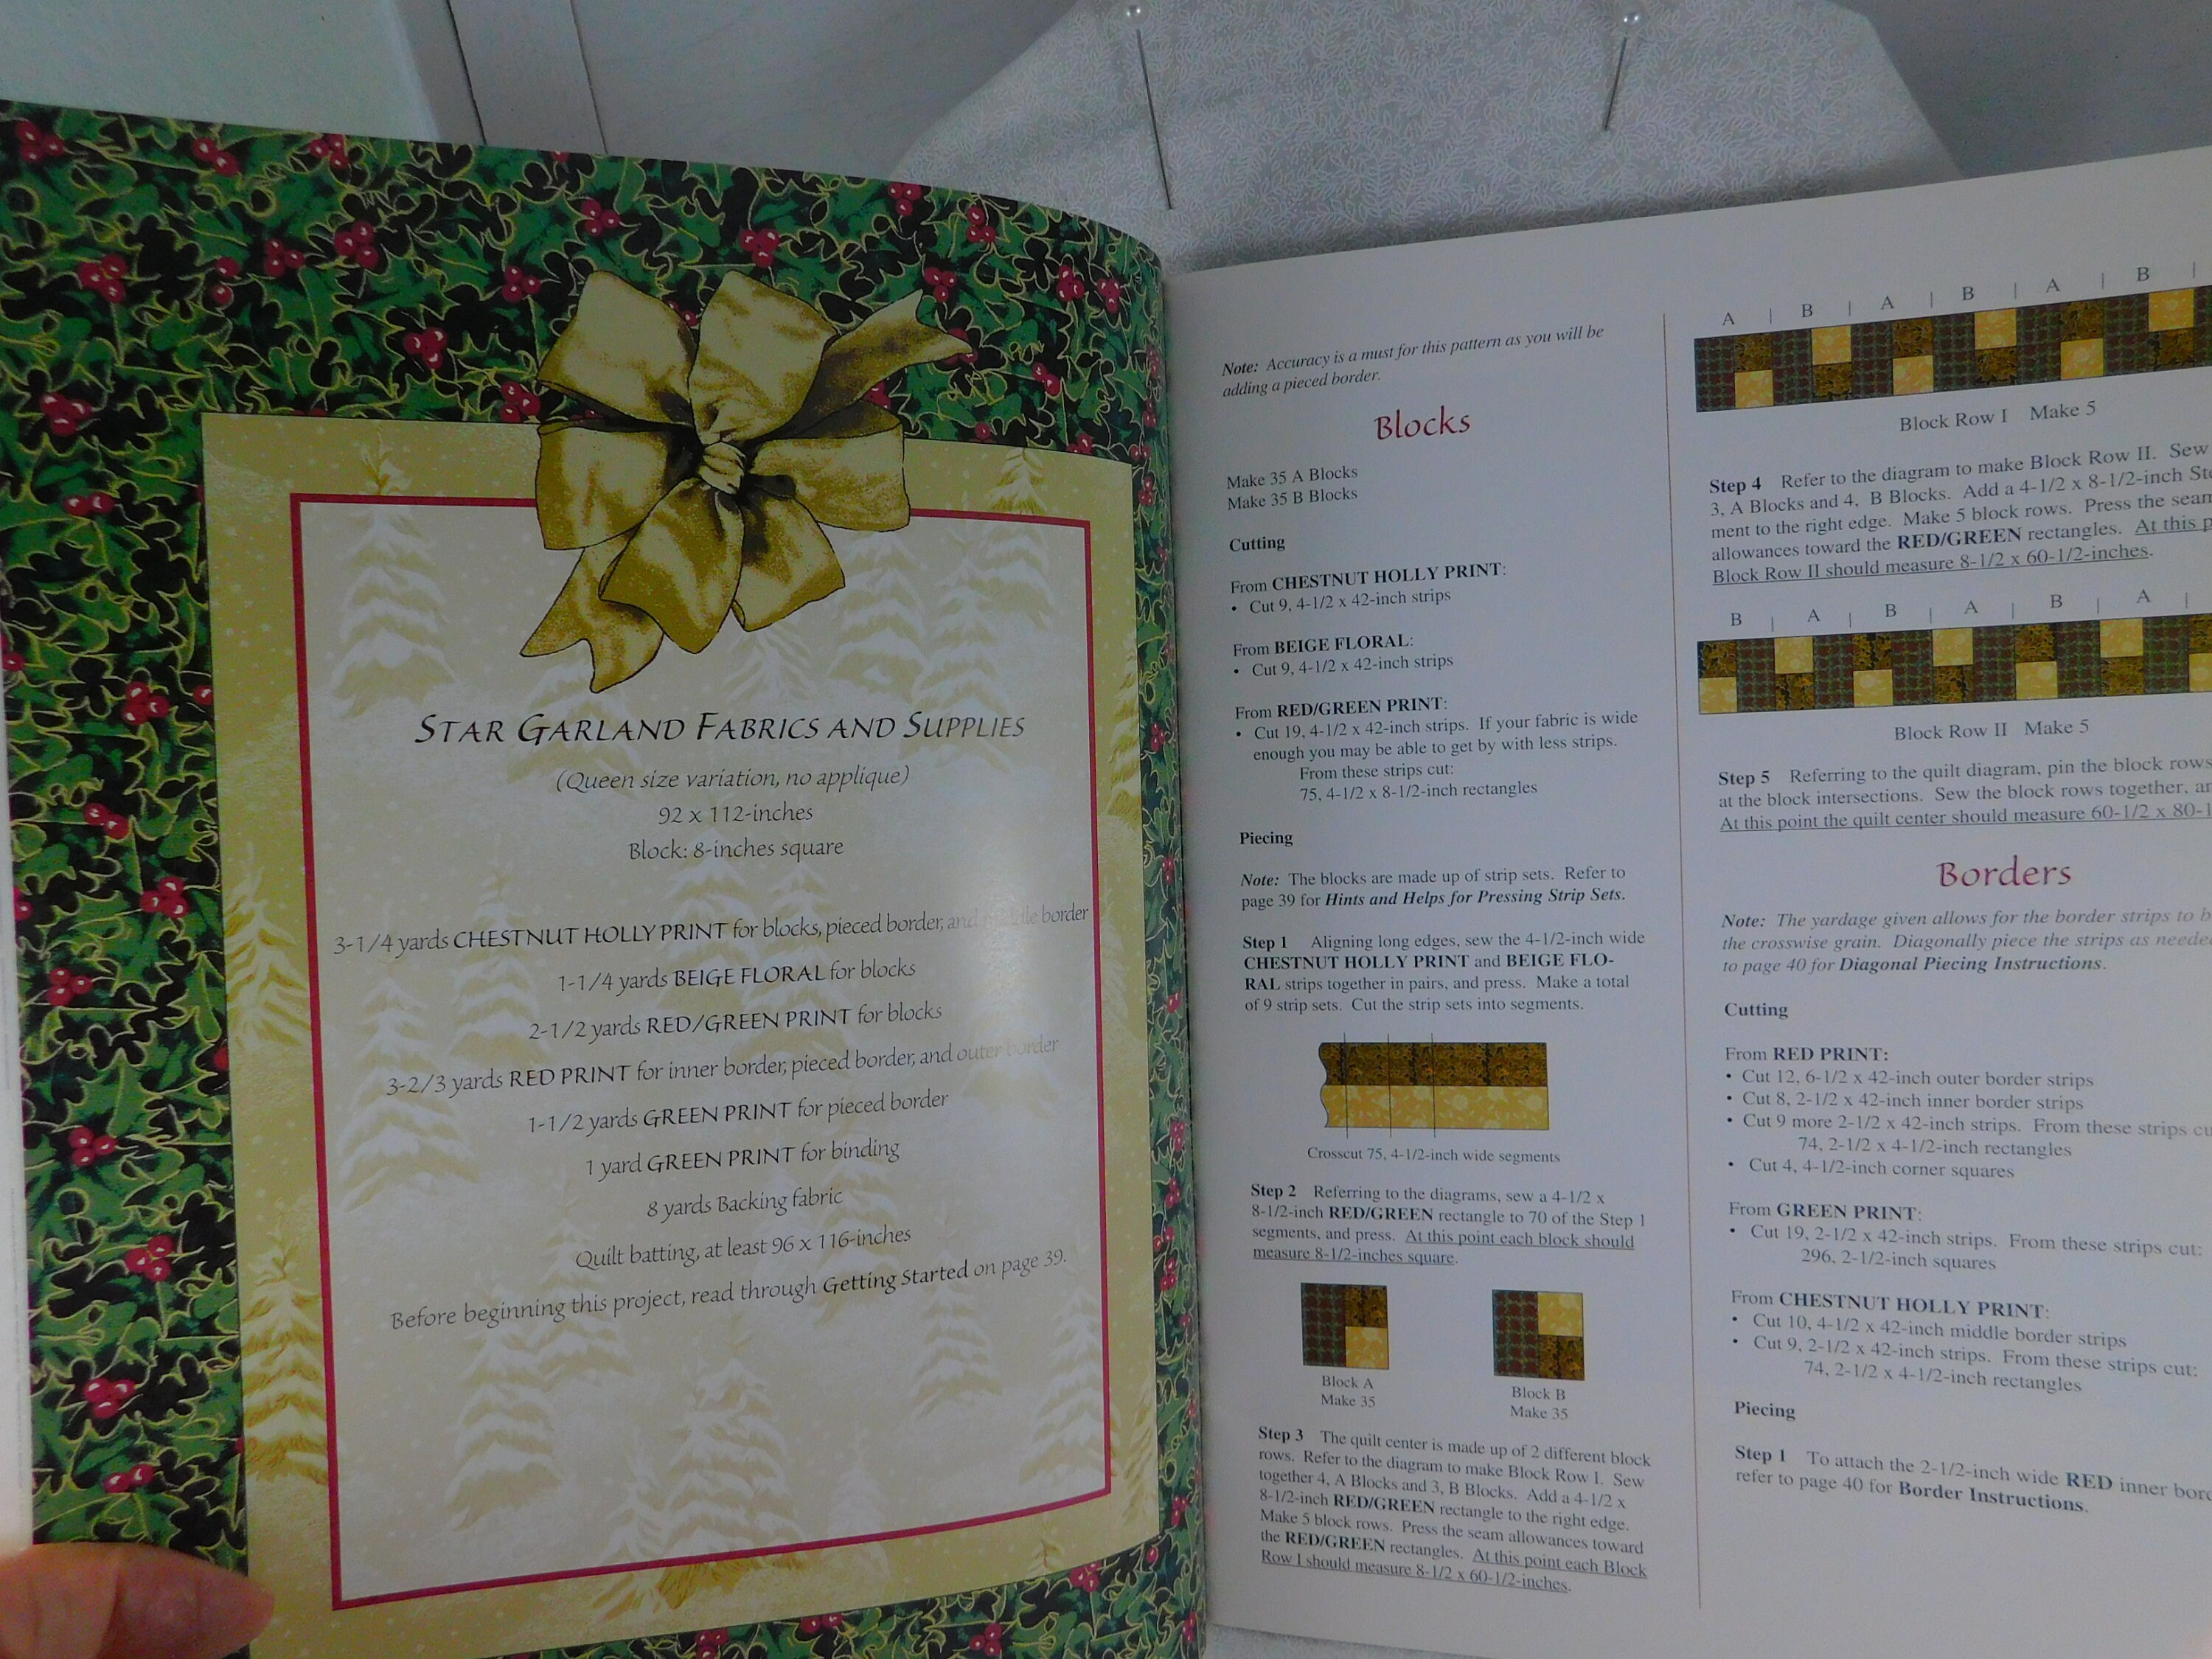 STAR GARLAND FABRICS AND SUPPLIES
(Queen size variation, no applique)
92 x 112-inches
Block: 8-inches square
3-1/4 yards CHESTNUT HOLLY PRINT for blocks, pieced border, and middle border
1-1/4 yards BEIGE FLORAL for blocks
2-1/2 yards RED/GREEN PRINT for blocks
3-2/3 yards RED PRINT for inner border, pieced border, and outer border
1-1/2 yards GREEN PRINT for pieced border
1 yard GREEN PRINT for binding
8 yards Backing fabric
Quilt batting, at least 96 x 116-inches
Before beginning this project, read through Getting Started on page 39.
Note: Accuracy is a must for this pattern as you will be
adding a pieced border.
Blocks
Make 35 A Blocks
Make 35 B Blocks
Cutting
From CHESTNUT HOLLY PRINT:
• Cut 9, 4-1/2 x 42-inch strips
From BEIGE FLORAL:
• Cut 9, 4-1/2 x 42-inch strips
From RED/GREEN PRINT:
• Cut 19, 4-1/2 x 42-inch strips. If your fabric is wide
enough you may be able to get by with less strips.
From these strips cut:
75, 4-1/2 x 8-1/2-inch rectangles
Piecing
Note: The blocks are made up of strip sets. Refer to
page 39 for Hints and Helps for Pressing Strip Sets.
Step 1 Aligning long edges, sew the 4-1/2-inch wide
CHESTNUT HOLLY PRINT and BEIGE FLO-
RAL strips together in pairs, and press. Make a total
of 9 strip sets. Cut the strip sets into segments.
Crosscut 75, 4-1/2-inch wide segments
Step 2 Referring to the diagrams, sew a 4-1/2 x
8-1/2-inch RED/GREEN rectangle to 70 of the Step 1
segments, and press. At this point each block should
measure 8-1/2-inches square.
Block A
Make 35
Block B
Make 35
Step 3 The quilt center is made up of 2 different block
rows. Refer to the diagram to make Block Row I. Sew
together 4, A Blocks and 3, B Blocks. Add a 4-1/2 x
8-1/2-inch RED/GREEN rectangle to the right edge.
Make 5 block rows. Press the seam allowances toward
the RED/GREEN rectangles. At this point each Block
Row I should measure 8-1/2 x 60-1/2-inches.
A | B | A | B | A | B |
Block Row I Make 5
Step 4 Refer to the diagram to make Block Row II. Sew
3, A Blocks and 4, B Blocks. Add a 4-1/2 x 8-1/2-inch
ment to the right edge. Make 5 block rows. Press the seam
allowances toward the RED/GREEN rectangles. At this
Block Row II should measure 8-1/2 x 60-1/2-inches.
B | A | B | A | B | A |
Block Row II Make 5
Step 5 Referring to the quilt diagram, pin the block rows
at the block intersections. Sew the block rows together,
At this point the quilt center should measure 60-1/2 x 80-1
Borders
Note: The yardage given allows for the border strips to
the crosswise grain. Diagonally piece the strips as needed
to page 40 for Diagonal Piecing Instructions.
Cutting
From RED PRINT:
• Cut 12, 6-1/2 x 42-inch outer border strips
• Cut 8, 2-1/2 x 42-inch inner border strips
• Cut 9 more 2-1/2 x 42-inch strips. From these strips
74, 2-1/2 x 4-1/2-inch rectangles
• Cut 4, 4-1/2-inch corner squares
From GREEN PRINT:
• Cut 19, 2-1/2 x 42-inch strips. From these strips cut:
296, 2-1/2-inch squares
From CHESTNUT HOLLY PRINT:
• Cut 10, 4-1/2 x 42-inch middle border strips
• Cut 9, 2-1/2 x 42-inch strips. From these strips cut:
74, 2-1/2 x 4-1/2-inch rectangles
Piecing
Step 1 To attach the 2-1/2-inch wide RED inner
refer to page 40 for Border Instructions.